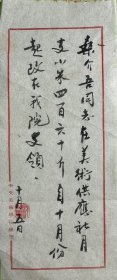 彝介吾同志在美術供應社月
支小米四百六十斤自十月份
起改在我院支領。
十月五日